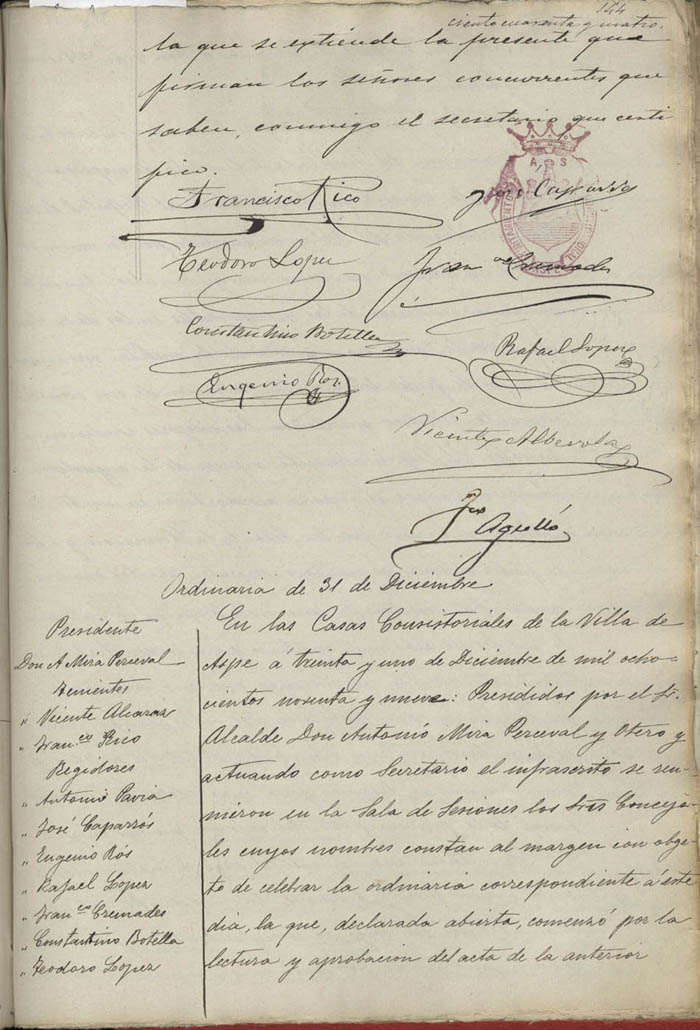 144
ciento cuarenta y cuatro.
la que se extiende la presente que
firman los señores concurrentes que
saben, conmigo el secretario que certi
fico.
Francisco Rico
José Caparrós
Teodoro Lopez
Fran.co Cremades
Constantino Botella
Rafael Lopez
Eugenio Ros.
Vicente Alberola
Agulló
Ordinaria de 31 de Diciembre
Presidente
Don A Mira Perceval
Tenientes
" Vicente Alcaraz
" Fran.co Rico
Regidores
" Antonio Pavia
" José Caparrós
" Eugenio Rós
" Rafael Lopez
" Fran.co Cremades
" Constantino Botella
" Teodoro Lopez
En las Casas Consistoriales de la Villa de
Aspe á treinta y uno de Diciembre de mil ocho-
cientos noventa y nueve: Presididos por el Sr.
Alcalde Don Antonio Mira Perceval y Otero y
actuando como Secretario el infrascrito se reu-
nieron en la Sala de Sesiones los Sres Conceja-
les cuyos nombres constan al margen con obge-
to de celebrar la ordinaria correspondiente á este
dia, la que, declarada abierta, comenzó por la
lectura y aprobacion del acta de la anterior